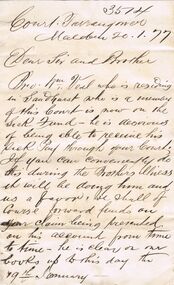 3574
Court Tarrangower
Maldon 20.1.77
Dear Sir and Brother
Bro Wm Veal who is residing
in Sandhurst who is a member
of this Court is now on the
Sick Fund - he is desirous
of being able to receive his
Sick Pay through your Court.
If you can conveniently do
this during the Brothers illness
it will be doing him and
us a favor. We shall of
Course forward funds on
your claim being presented
on his account from time
to time - he is clear on our
Books up to this day the
January